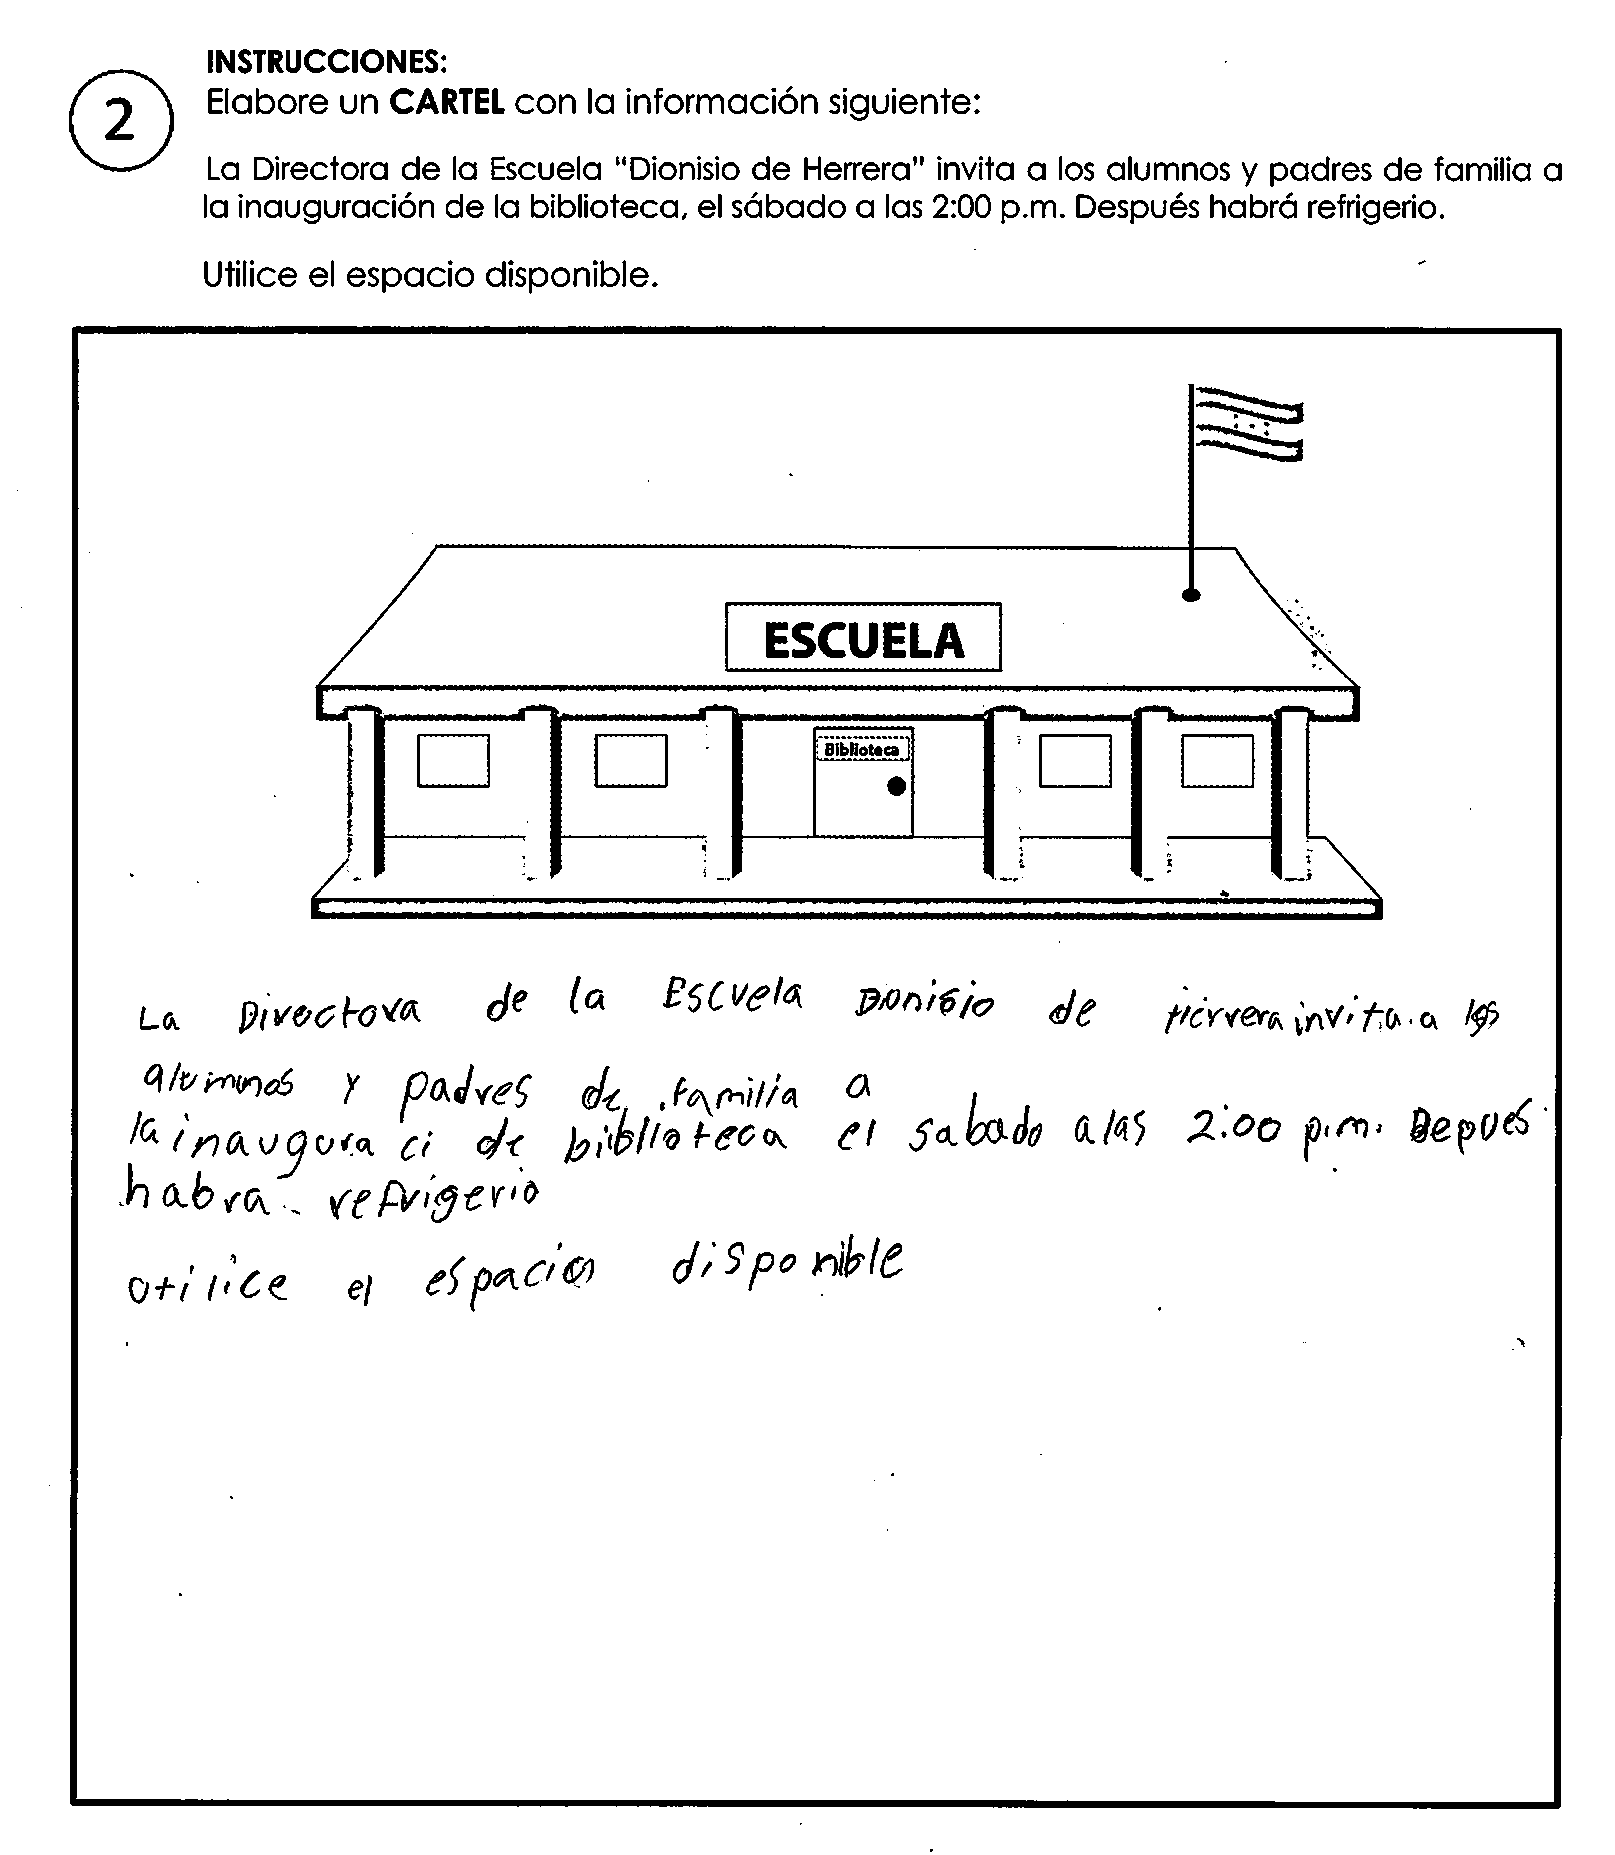 INSTRUCCIONES:
2
Elabore un CARTEL con la información siguiente:
La Directora de la Escuela "Dionisio de Herrera" invita a los alumnos y padres de familia a
la inauguración de la biblioteca, el sábado a las 2:00 p.m. Después habrá refrigerio.
Utilice el espacio disponible.
ESCUELA
Biblioteca
La Directora de la Escuela Donisio de Herrera invita a los
alumnos y padres de familia a
la inaugura ci de biblioteca el sabado a las 2:00 p.m. Depues
habra refrigerio
utilice el espacio disponible